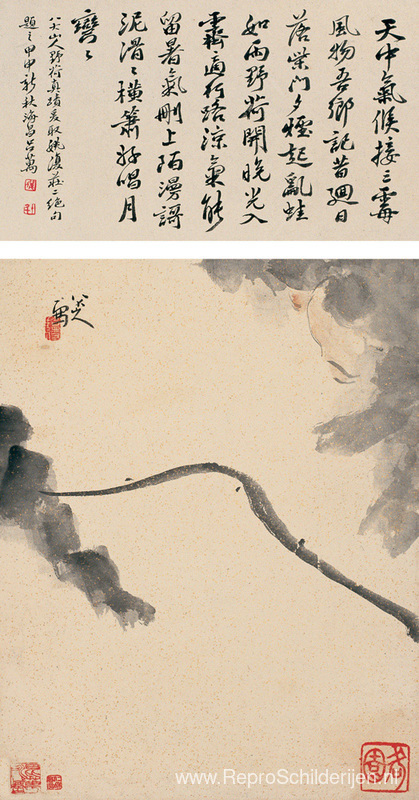 天中氣候接三霉
風物吾鄉記昔
日
落柴門夕煙起亂蛙
如雨野荷開晚光入
霽適行路涼氣能
留暑氣刪上陌漫謌
泥滑滑橫簫好唱月
彎彎
八大山人野荷真蹟爰取姚
莊二絕句
題之甲申新秋海昌呂萬
八大
www.ReproSchilderijen.nl